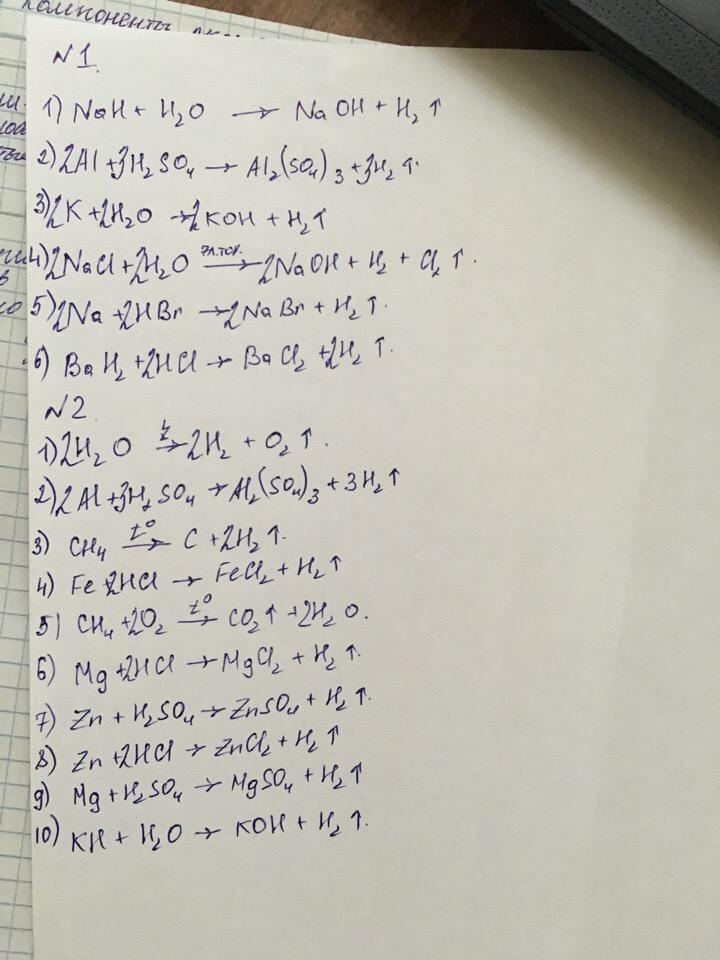 компоненты
N1.
1) NaH + H₂O → NaOH + H₂↑
2) 2Al + 3H₂SO₄ → Al₂(SO₄)₃ + 3H₂↑.
3) 2K + 2H₂O → 2KOH + H₂↑
4) 2NaCl + 2H₂O эл.ток. → 2NaOH + H₂ + Cl₂↑.
5) 2Na + 2HBr → 2NaBr + H₂↑.
6) BaH₂ + 2HCl → BaCl₂ + 2H₂↑.
N2.
1) 2H₂O → 2H₂ + O₂↑.
2) 2Al + 3H₂SO₄ → Al₂(SO₄)₃ + 3H₂↑
3) CH₄ t° → C + 2H₂↑.
4) Fe + 2HCl → FeCl₂ + H₂↑
5) CH₄ + 2O₂ t° → CO₂↑ + 2H₂O.
6) Mg + 2HCl → MgCl₂ + H₂↑.
7) Zn + H₂SO₄ → ZnSO₄ + H₂↑.
8) Zn + 2HCl → ZnCl₂ + H₂↑
9) Mg + H₂SO₄ → MgSO₄ + H₂↑
10) KH + H₂O → KOH + H₂↑.